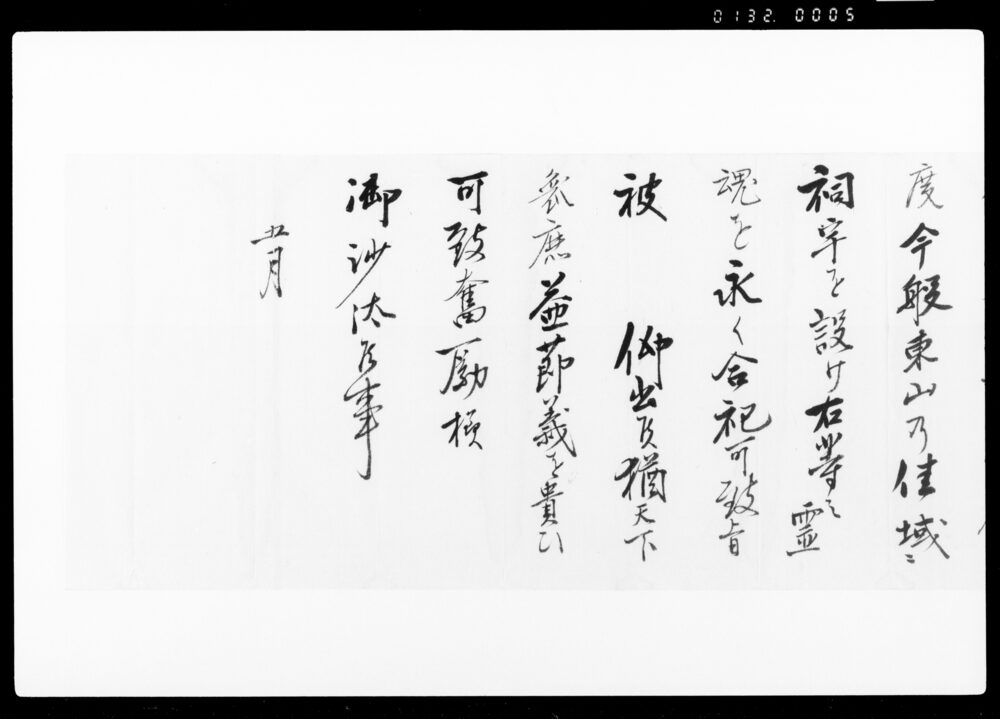 0132. 0005
度今般東山乃佳域ニ
祠宇を設け右等之霊
魂を永く合祀可致旨
被 仰出候猶天下
衆庶益節義を貴ひ
可致奮励様
御沙汰候事
五月